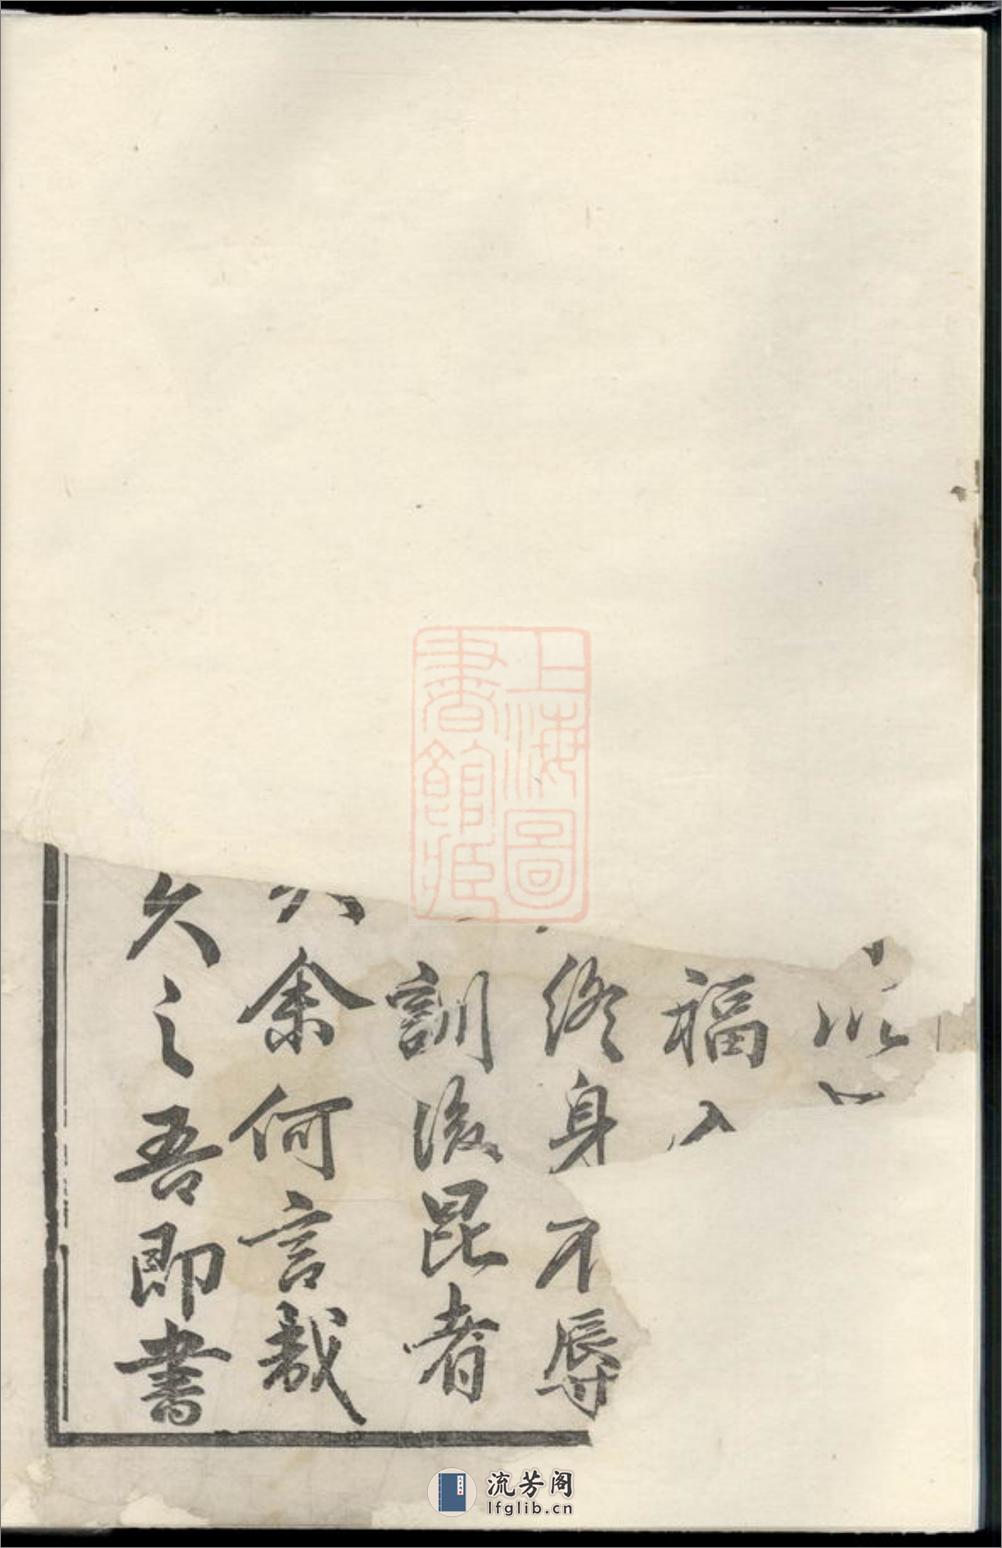 福入
終身不辱
訓後昆者
余何言哉
久之吾即書
上海圖
書館藏
流芳阁
lfglib.cn